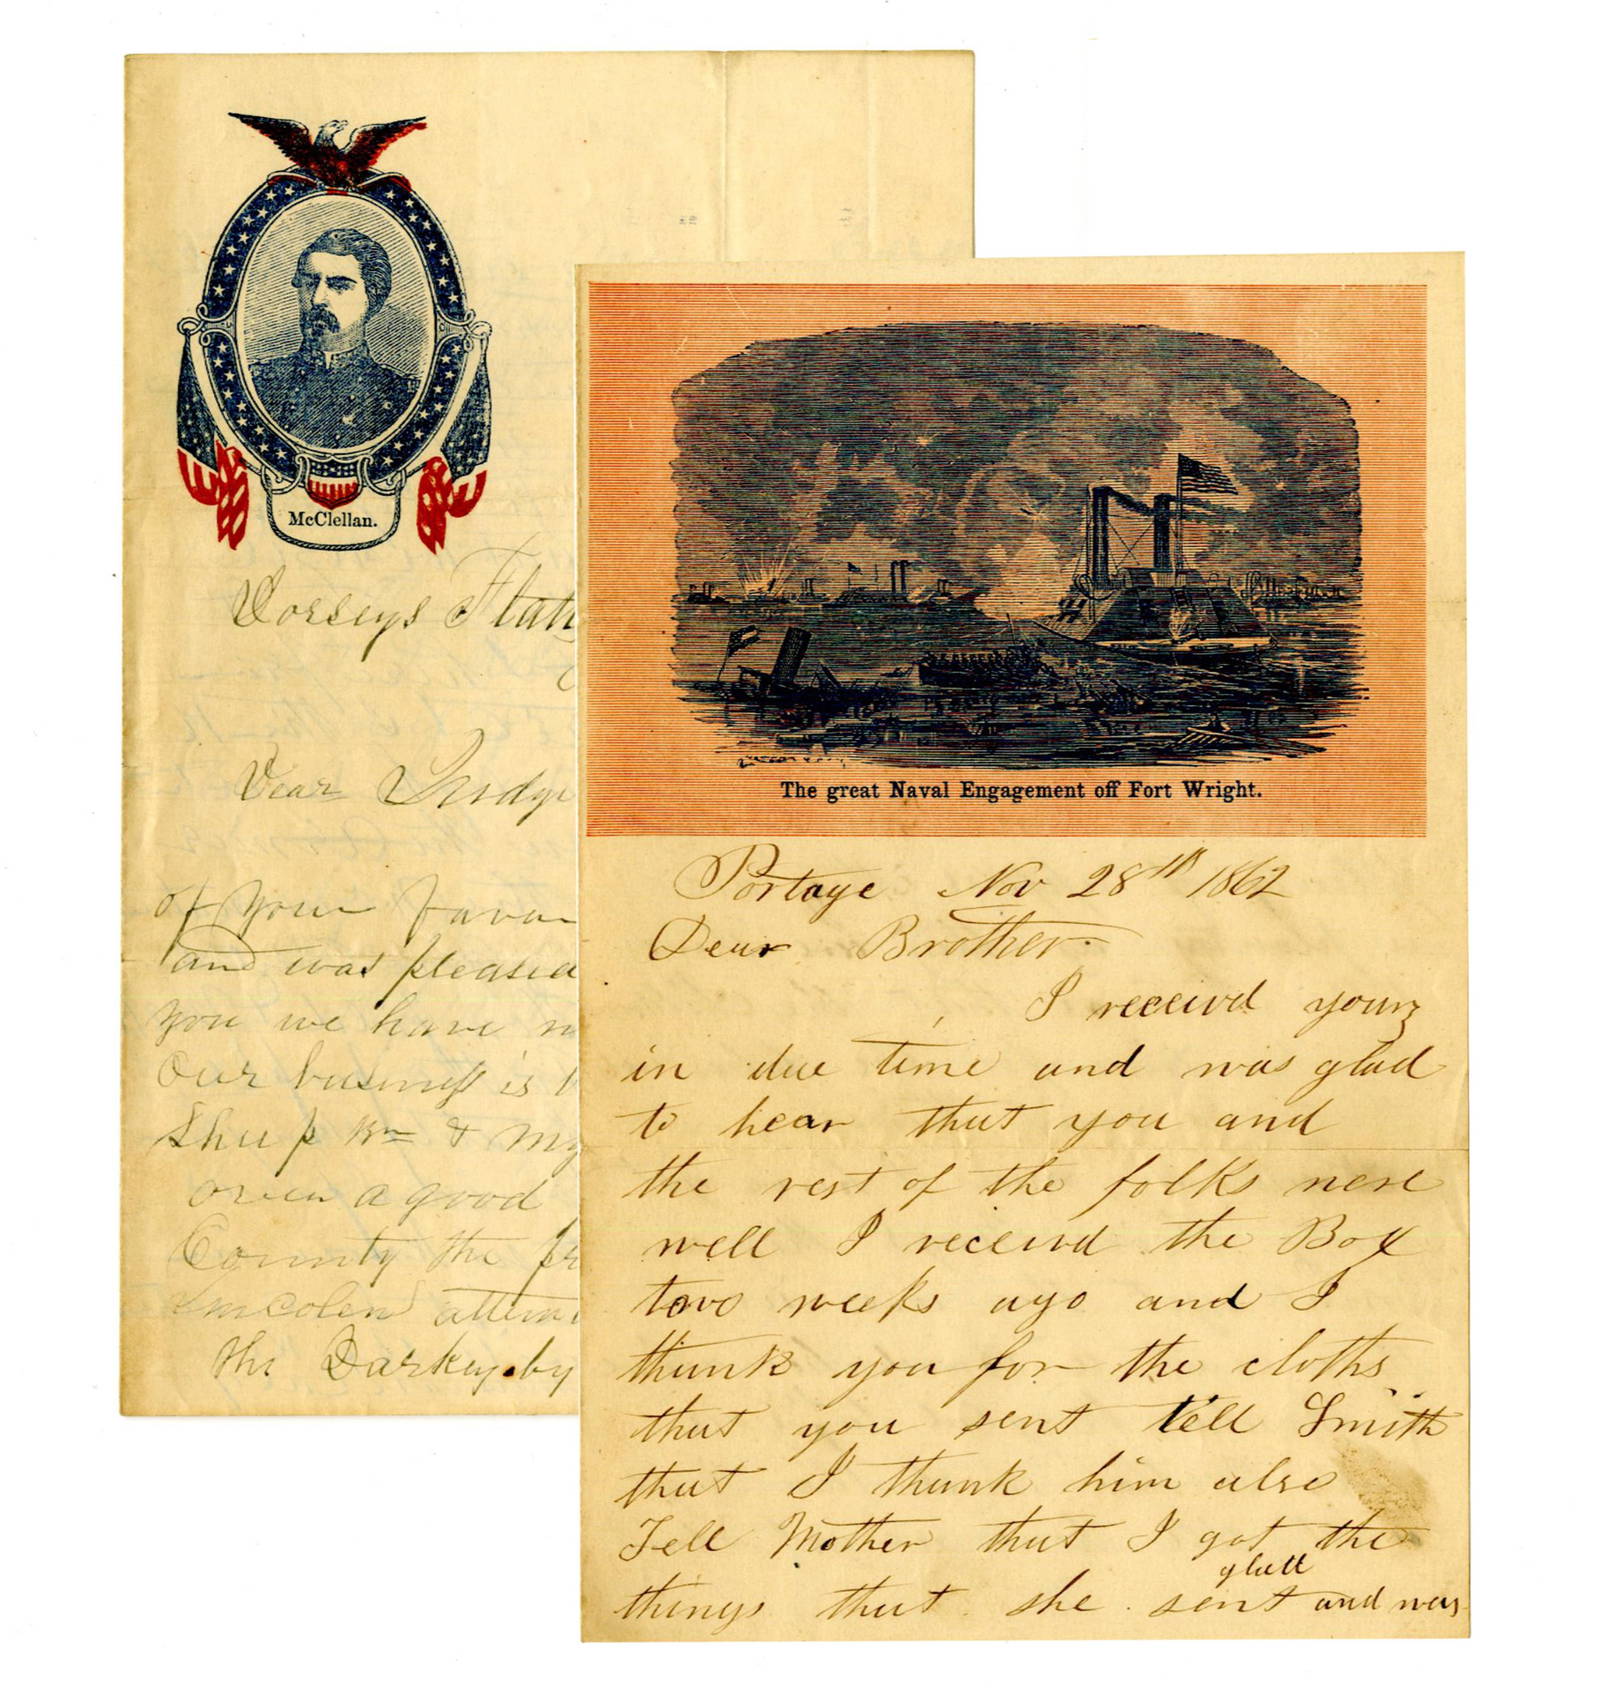 McClellan.
Dorseys Flatt
Dear Judge
of your favor
and was pleased
you we have
Our business is
Sheep &
a good
County the
Lincolen
the Darkey by
The great Naval Engagement off Fort Wright.
Portage Nov 28th 1862
Dear Brother.
I receivd yours
in due time and was glad
to hear that you and
the rest of the folks were
well I receivd the Box
two weeks ago and I
thank you for the cloths
that you sent tell Smith
that I thank him also
Tell Mother that I got the
glad
things that she sent and was